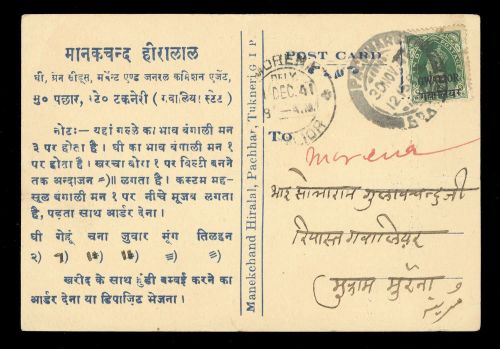 मानकचन्द हीरालाल
घी, ग्रेन सीड्स, मर्चेन्ट एण्ड जनरल कमिशन एजेंट,
मु० पछार, पे० टकनेरी (ग्वालियर स्टेट)
नोट:- यहां गल्ले का भाव बंगाली मन
३ पर होता है। घी का भाव बंगाली मन १
पर होता है। खरचा बोरा १ पर बिल्टी बनने
तक अन्दाजन =)॥ लगता है। कस्टम मह-
सूल बंगाली मन १ पर नीचे मूजब लगता
है, पड़ता साथ आर्डर देना।
घी गेहूं चना जुवार मूंग तिलहन
२) ≡) ≡)
खरीद के साथ हुंडी बम्बई करने का
आर्डर देना या डिपाज़िट भेजना।
Manekchand Hiralal, Pachhar, Tukneri G I P
POST CARD
MORENA
DELY
DEC. 41
GWALIOR
GWALIOR
गवालियर
To
Morena
भाई सोभाराम गुलाबचन्द जी
रियासत गवालियर
मुकाम मुरैना